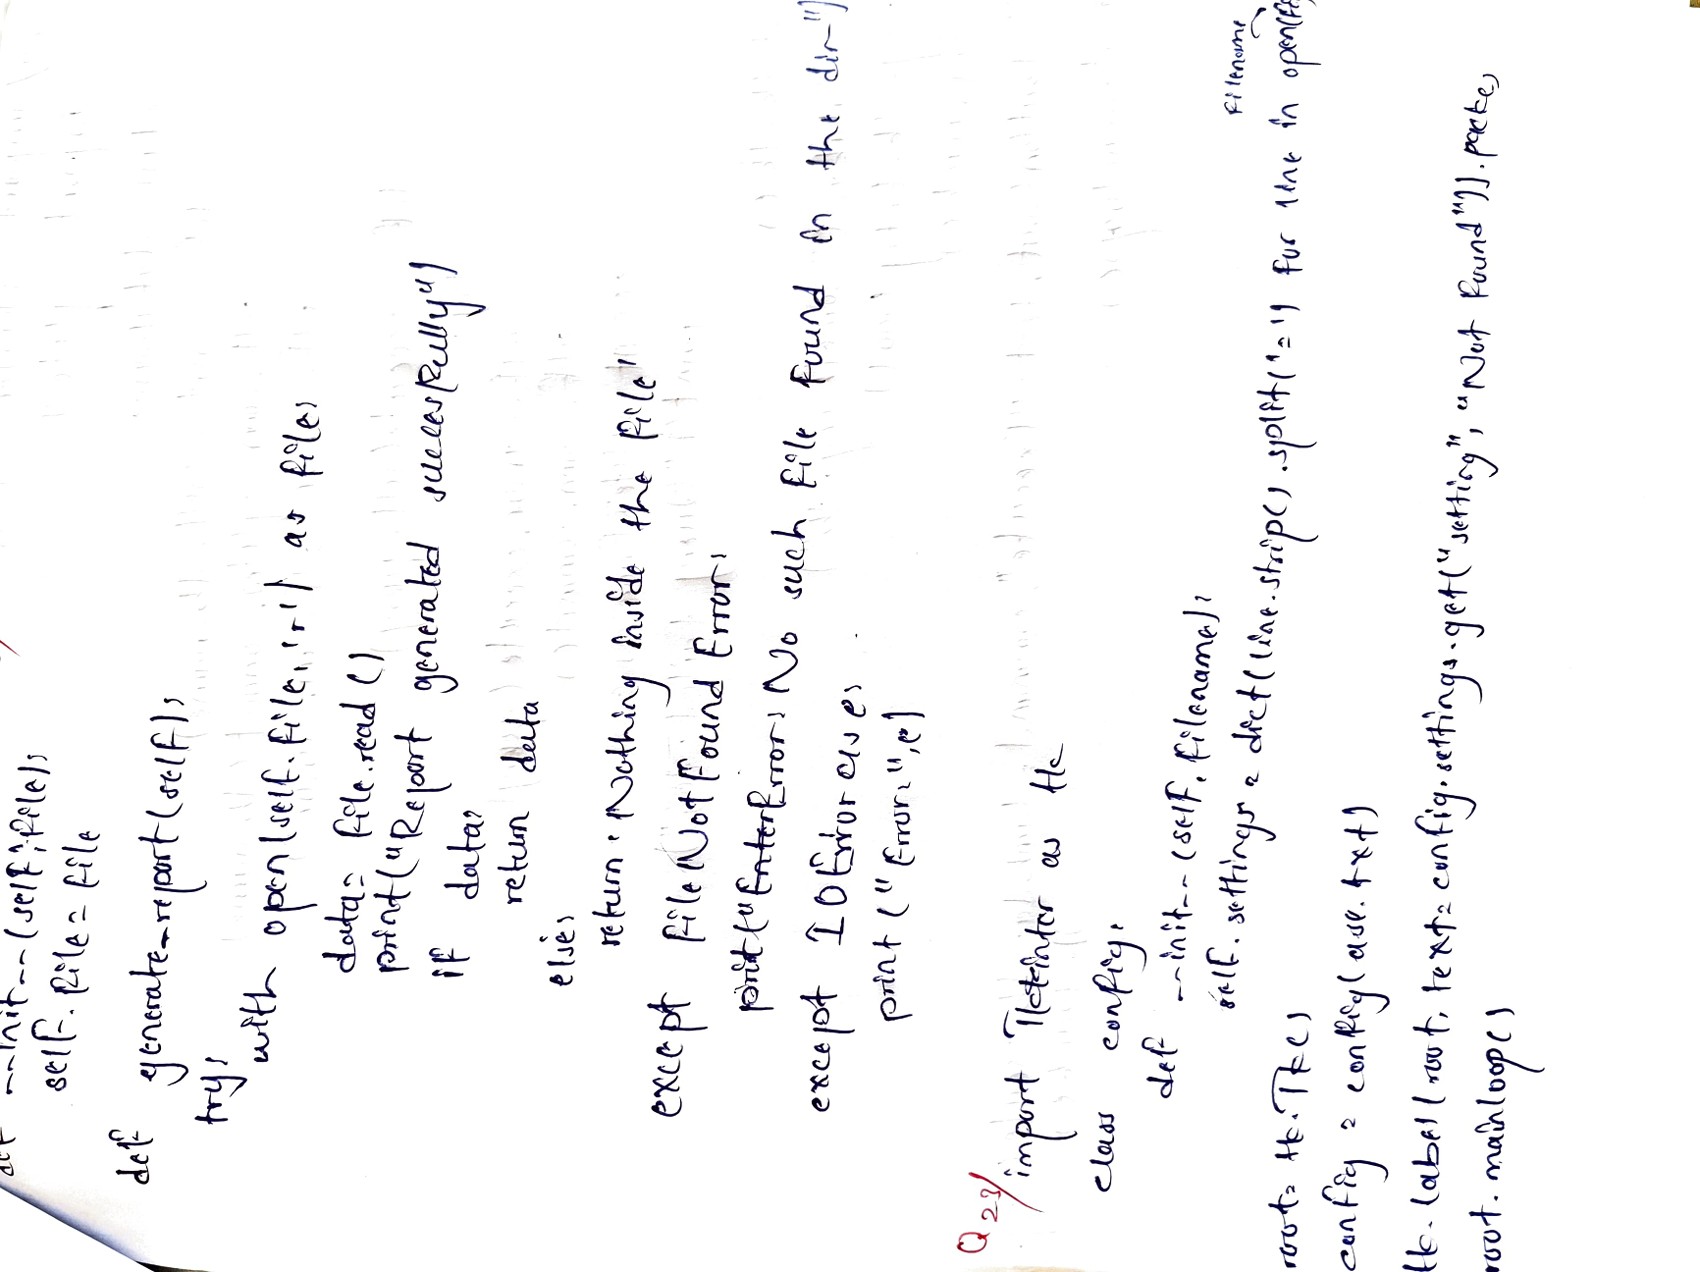 def __init__(self, file):
self.file = file
def generate_report(self):
try:
with open(self.file, 'r') as file:
data = file.read()
print("Report generated successfully")
if data:
return data
else:
return 'Nothing inside the file'
except FileNotFoundError:
print("EnterError: No such file found in the dir")
except IOError as e:
print("Error:", e)
Q 23/
import Tkinter as tk
class config:
def __init__(self, filename):
filename
self.settings = dict(line.strip().split('=') for line in open(
root = tk.Tk()
config = config(
tk.label(root, text=config.settings.get("setting", "Not found")).
root.mainloop()